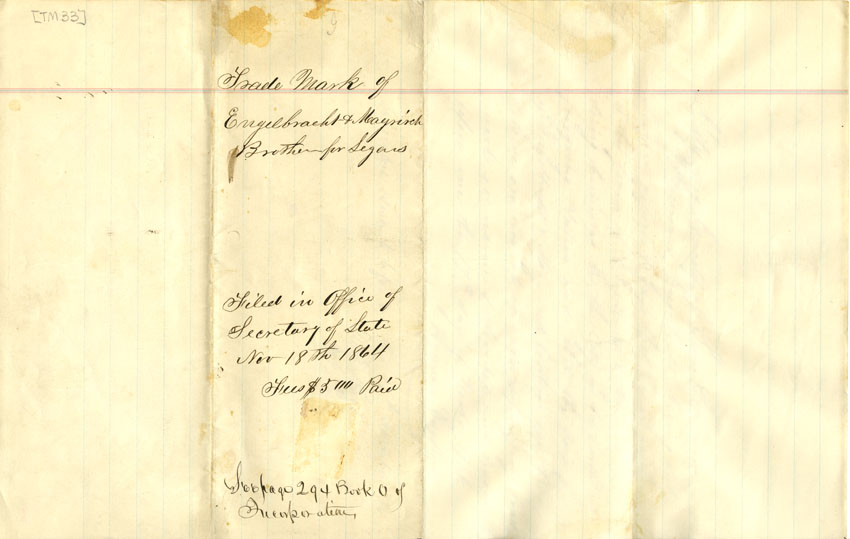 [TM 33]
Trade Mark of
Engelbracht & Mayrisch
Brothers for Segars
Filed in Office of
Secretary of State
Nov 18th 1864
Fees $5 00 Paid
See page 294 Book O of
Incorporation